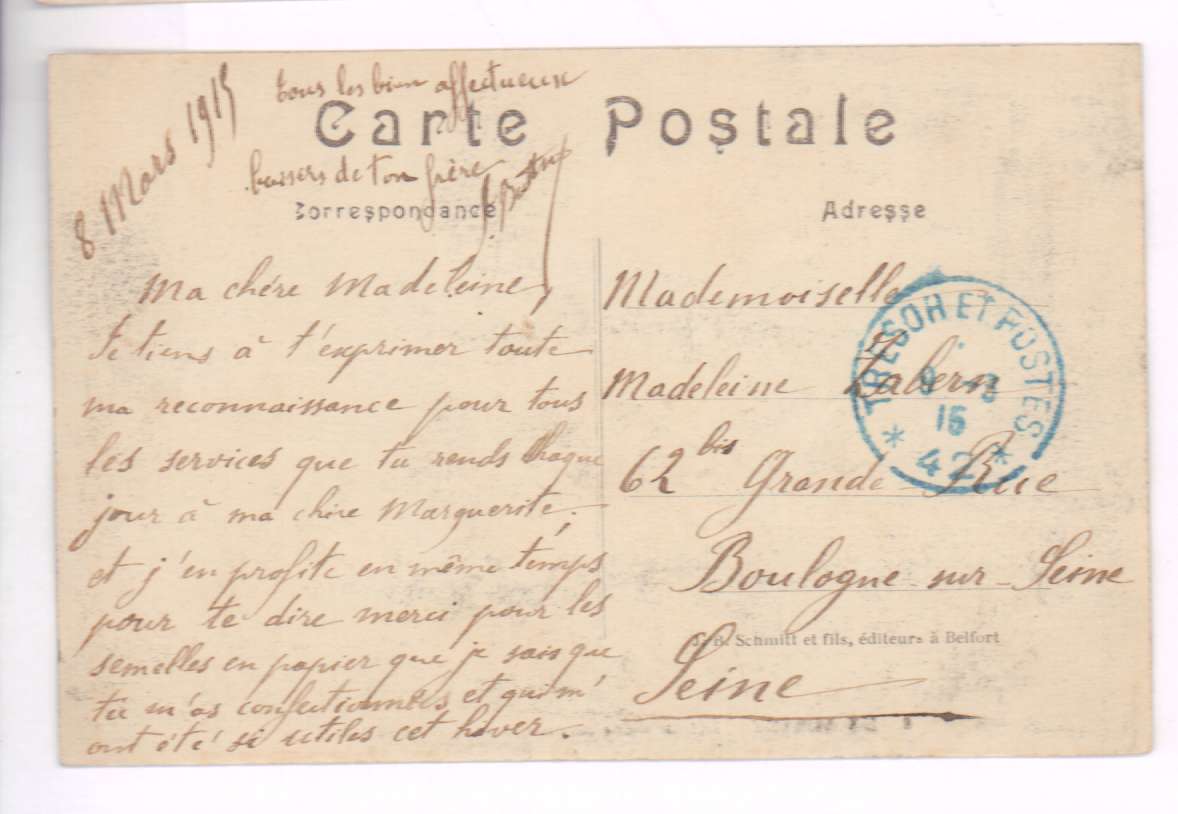 8 Mars 1915
tous les bien affectueux
Carte Postale
baisers de ton frère
Correspondance
Adresse
Ma chère Madeleine,
Je tiens à t'exprimer toute
ma reconnaissance pour tous
les services que tu rends chaque
jour à ma chère Marguerite.
et j'en profite en même temps
pour te dire merci pour les
semelles en papier que je sais que
tu m'as confectionnées et qui m'
ont été si utiles cet hiver.
Mademoiselle
Madeleine Zabern
62 bis Grande Rue
Boulogne-sur-Seine
Seine
TRESOR ET POSTES
9 -3
15
* 42 *
J.-B. Schmitt et fils, éditeurs à Belfort